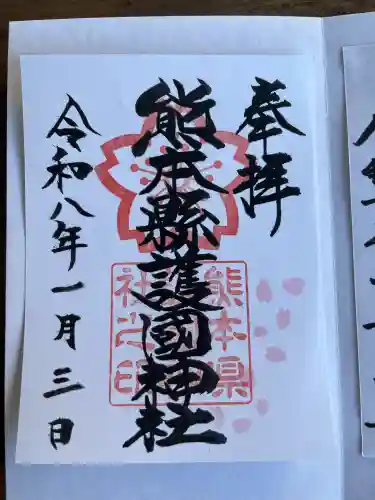 奉拝
熊本縣護國神社
熊本県
護国神
社之印
令和八年一月三日